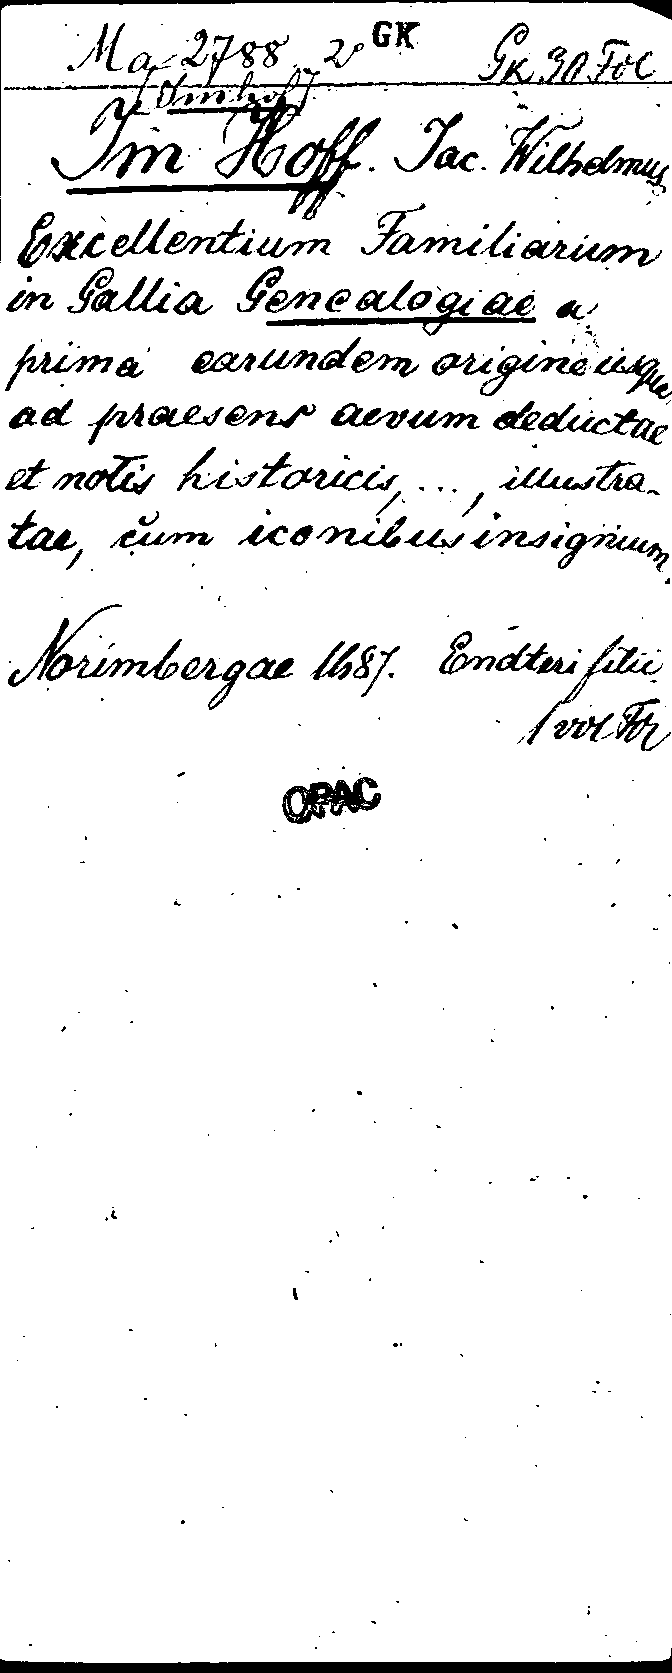 Ma 2788 2° GK Gk 30 Fol
[Imhof]
Im Hoff. Jac. Wilhelmus
Excellentium Familiarum
in Gallia Genealogiae a
prima earundem origine usque
ad praesens aevum deductae
et notis historicis, ..., illustra-
tae, cum iconibus insignium.
Norimbergae 1687. Endteri filii
1 vol Fol
OPAC